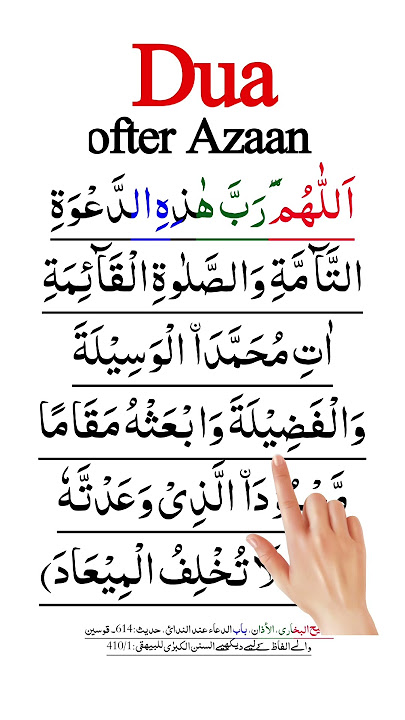 Dua
ofter Azaan
اَللّٰهُمَّ رَبَّ هٰذِهِ الدَّعْوَةِ
التَّآمَّةِ وَالصَّلٰوةِ الْقَآئِمَةِ
اٰتِ مُحَمَّدَاۨ الْوَسِيْلَةَ
وَالْفَضِيْلَةَ وَابْعَثْهُ مَقَامًا
الَّذِىْ وَعَدْتَّهٗ
لَا تُخْلِفُ الْمِيْعَادَ)
البخاری، الأذان، باب الدعاء عند النداء، حدیث: 614۔ قوسین
والے الفاظ کے لیے دیکھیے السنن الکبرٰی للبیهقی: 410/1